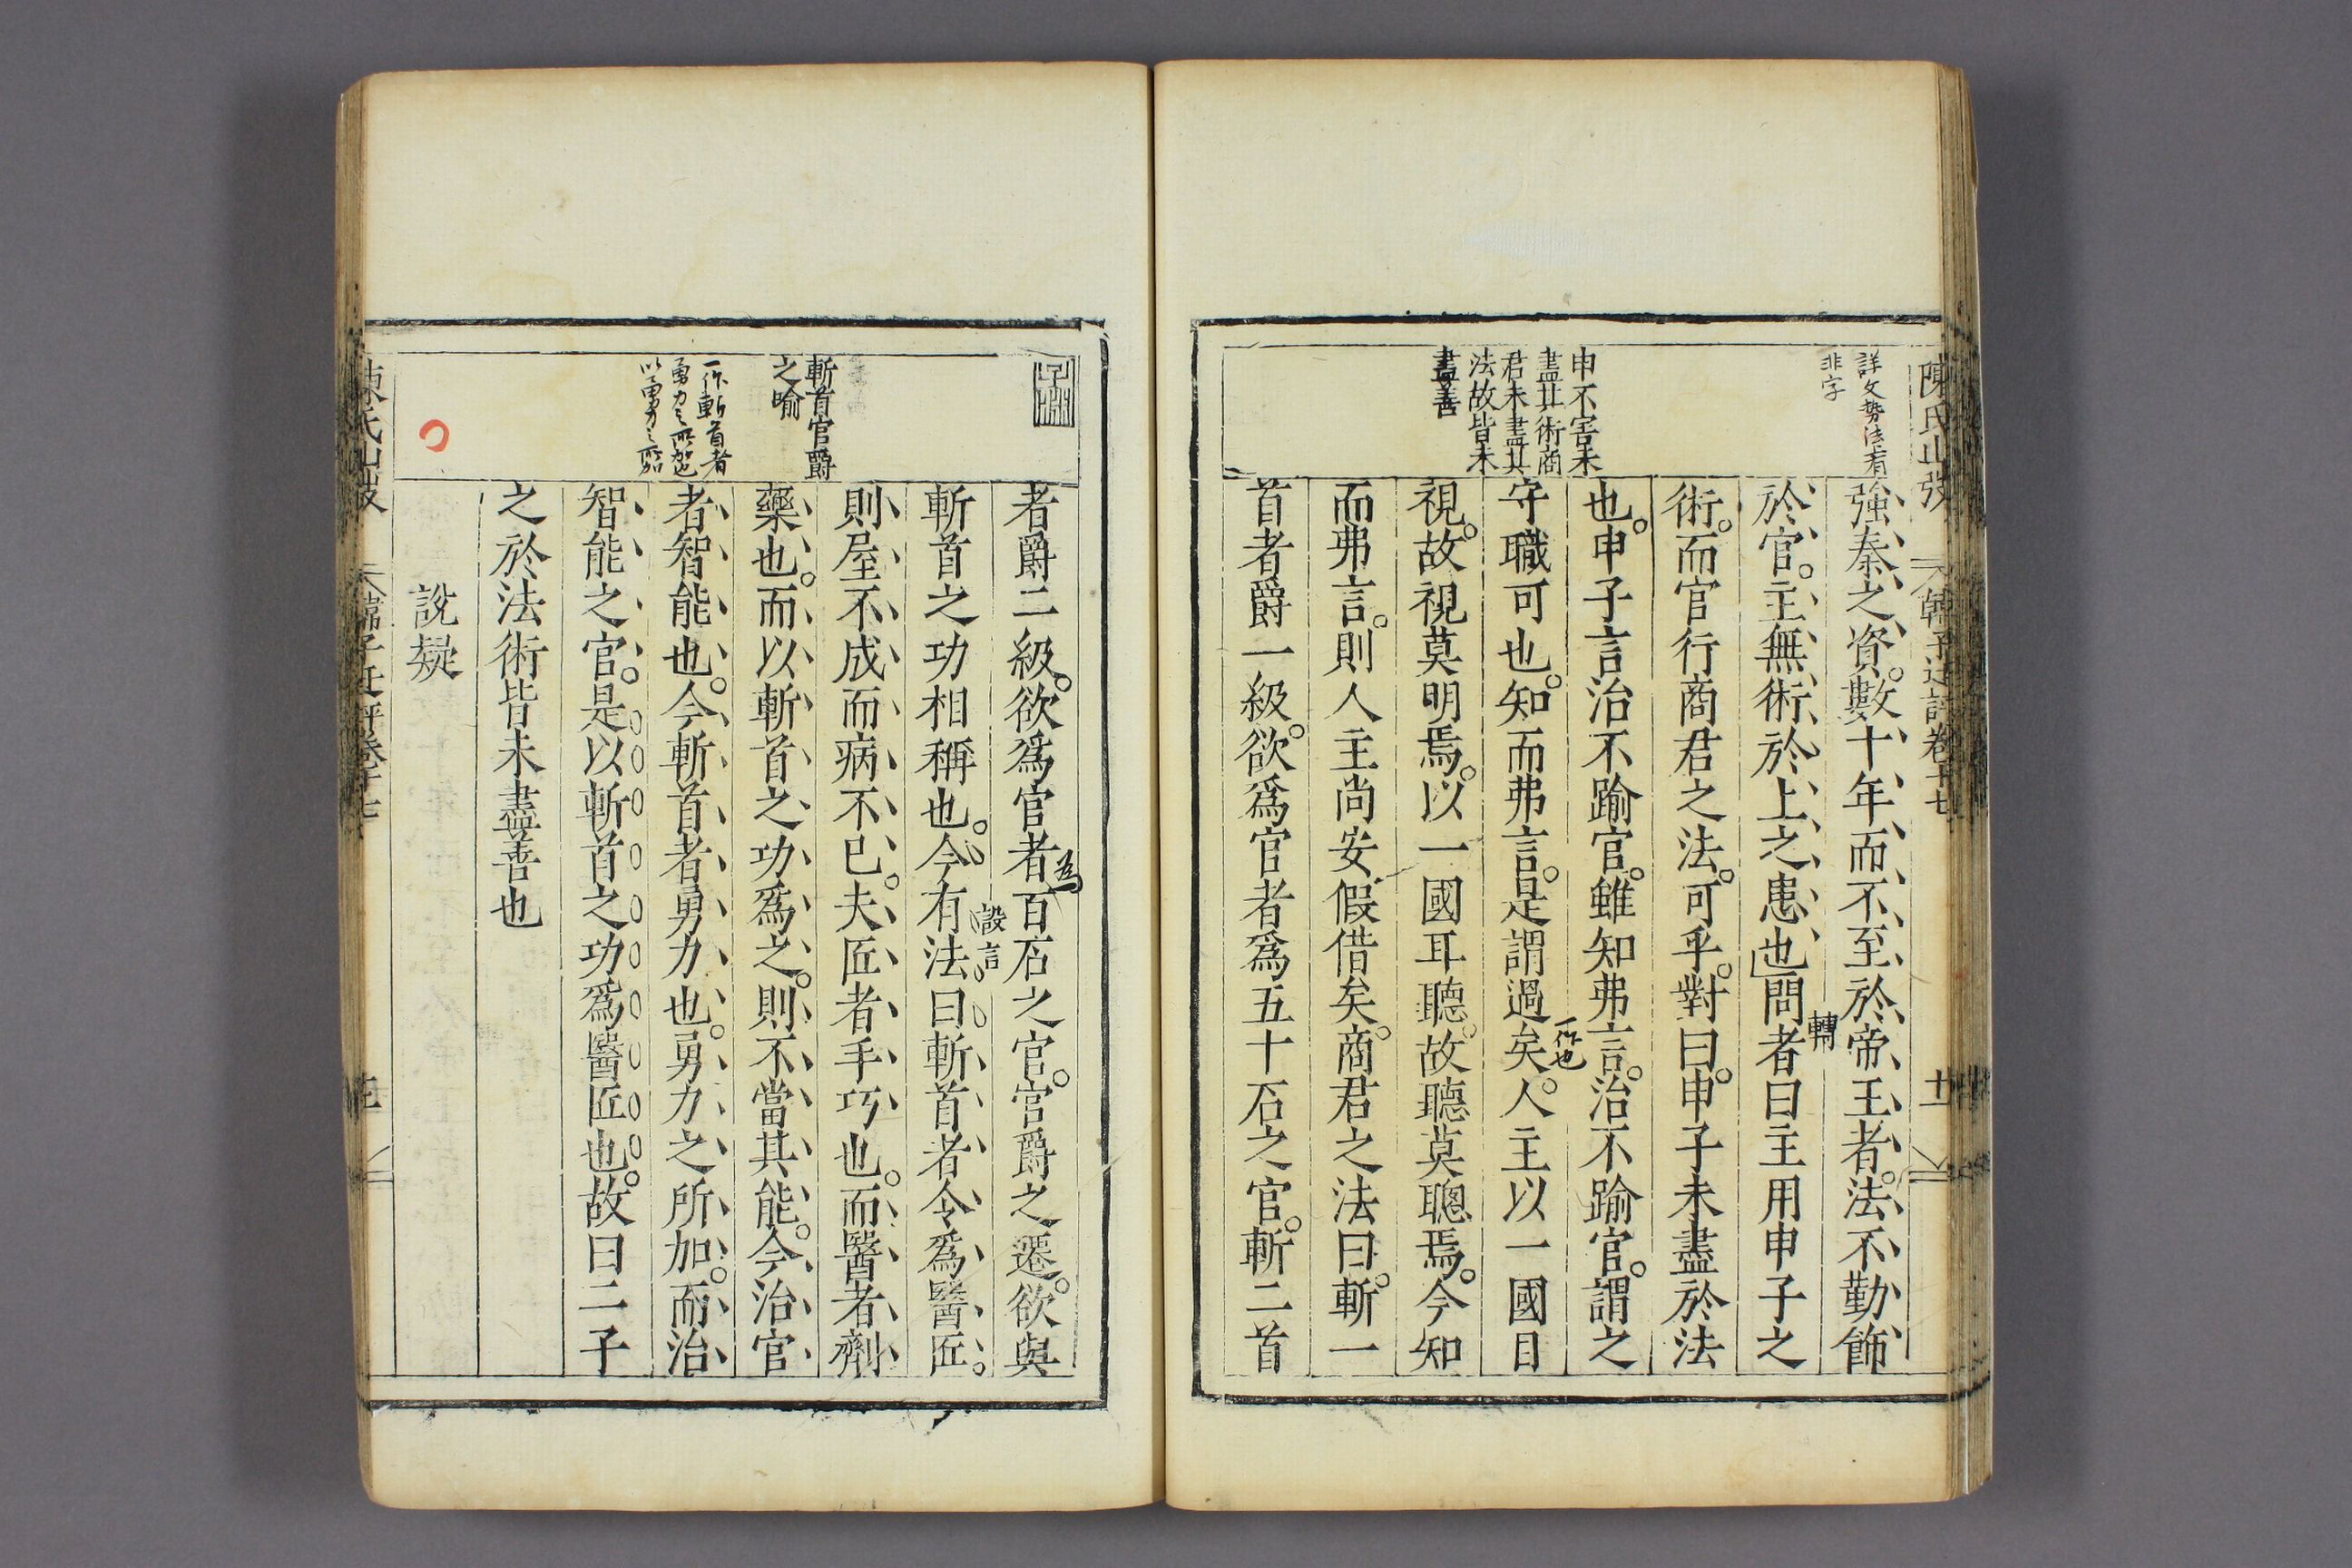 韓子迂評卷十七
十一
詳文勢法有
非字
強秦之資。數十年而不至於帝王者。法不勤飾
於官。主無術於上之患也問者曰主用申子之
轉
術。而官行商君之法。可乎。對曰。申子未盡於法
也。申子言治不踰官。雖知弗言。治不踰官。謂之
申不害未
盡其術商
君未盡其
法故皆未
盡善
守職可也。知而弗言。是謂過矣。人主以一國目
一作也
視。故視莫明焉。以一國耳聽。故聽莫聰焉。今知
而弗言。則人主尚安假借矣。商君之法曰。斬一
首者爵一級。欲爲官者爲五十石之官。斬二首
者爵二級。欲爲官者百石之官。官爵之遷。欲與
爲
斬首之功相稱也。今有法曰斬首者令爲醫匠。
設言
則屋不成而病不已。夫匠者手巧也。而醫者劑
斬首官爵
之喻
藥也。而以斬首之功爲之。則不當其能。今治官
一作斬首者
勇力之所加也
以勇力之所加
者智能也。今斬首者勇力也。勇力之所加。而治
智能之官。是以斬首之功爲醫匠也。故曰二子
之於法術皆未盡善也
說疑